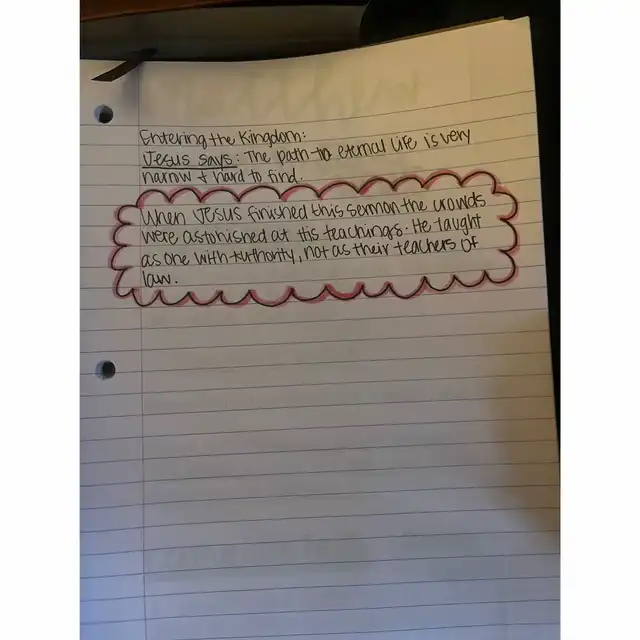 Entering the Kingdom:
Jesus says: The path to eternal life is very
narrow + hard to find.
When Jesus finished this sermon the crowds
were astonished at His teachings. He taught
as one with Authority, not as their teachers of
law.